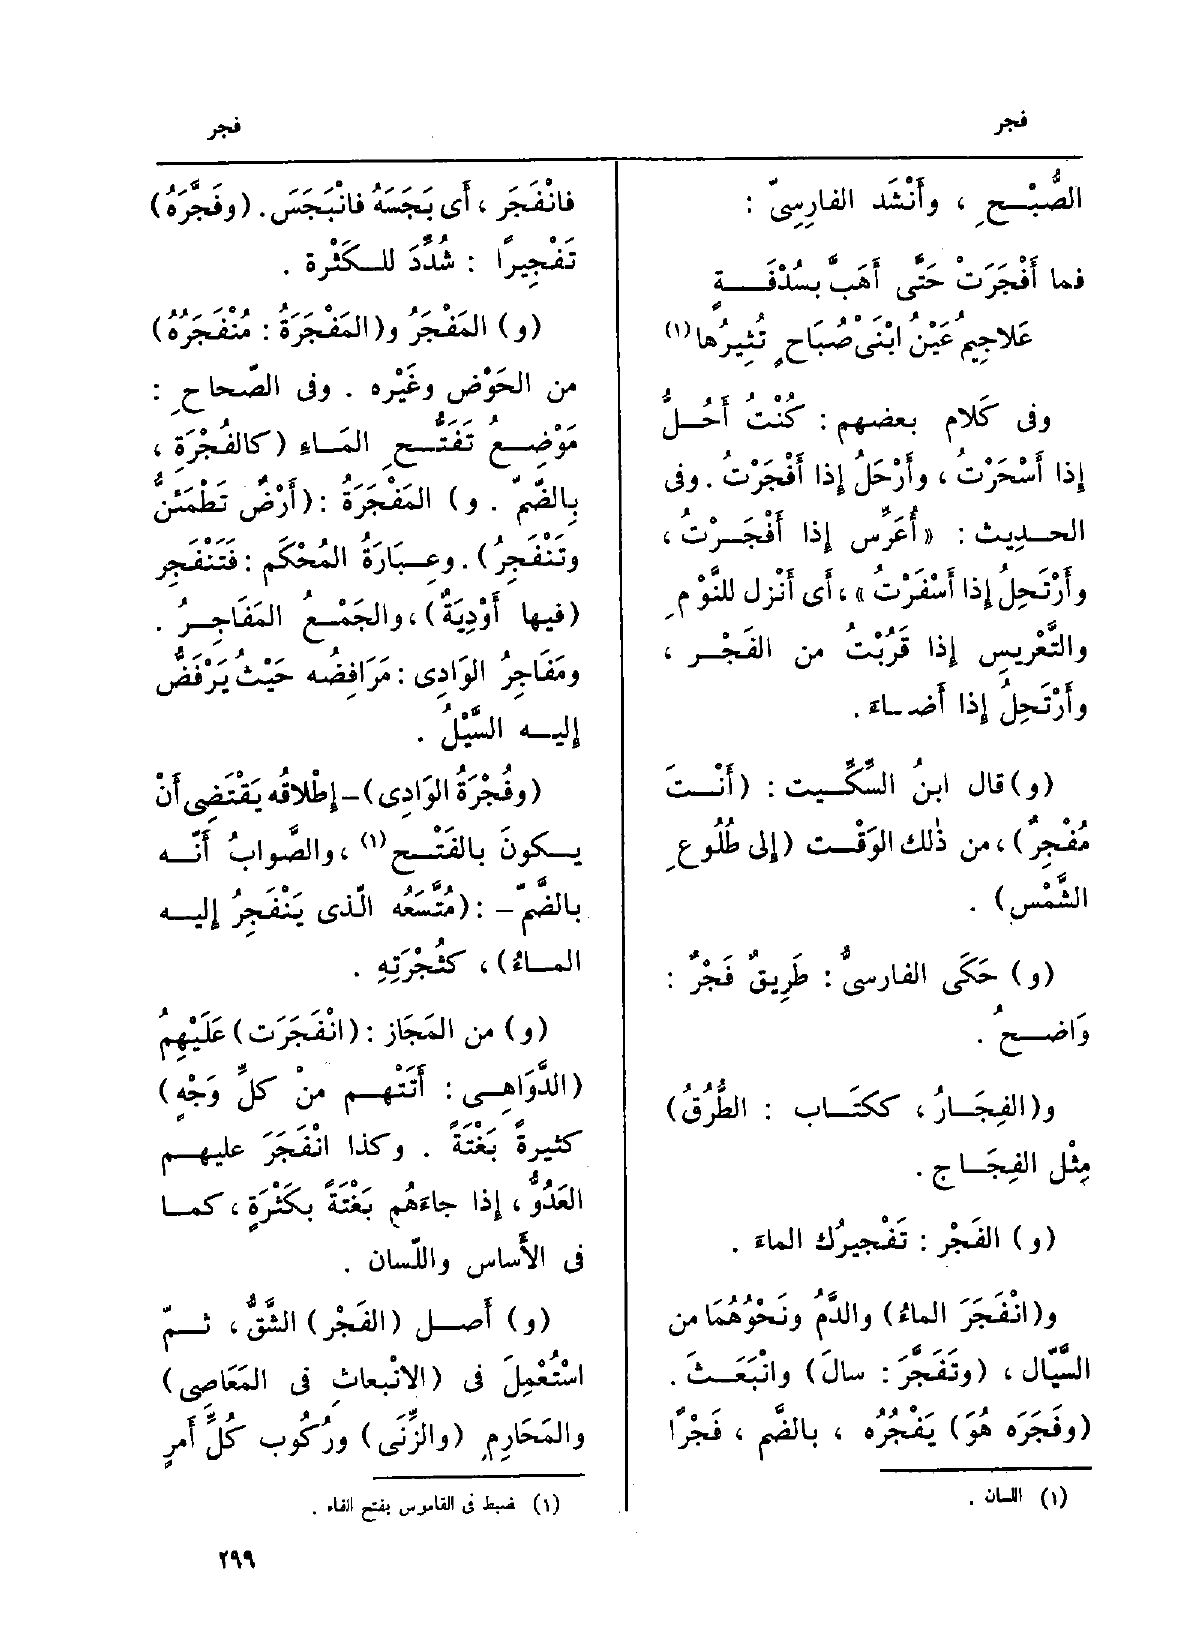 فجر
فجر
الصُّبْـحِ ، وأَنْشَد الفارِسِىّ :
فما أَفْجَرَتْ حَتَّى أَهَبَّ بسُدْفَـــةٍ
عَلاجِيمُ عَيْنُ ابْنَىْ صُبَاحٍ تُثِيرُها (١)
وفى كَلام بعضهم : كُنْتُ أَحُـلُّ
إذا أَسْحَرْتُ ، وأَرْحَلُ إذا أَفْجَرْتُ . وفى
الحـديث : « أُعَرِّس إذا أَفْجَـرْتُ ،
وأَرْتَحِلُ إذا أَسْفَرْتُ » ، أى أَنْزل للنَّوْمِ
والتَّعْريس إذا قَرُبْتُ من الفَجْـر ،
وأَرْتَحِلُ إذا أَضـاءَ .
(و) قال ابنُ السِّكِّـيت : (أَنْـتَ
مُفْجِرٌ) ، من ذٰلك الوَقْـت (إلى طُلُوعِ
الشَّمْس) .
(و) حَكَى الفارسىُّ : طَرِيقٌ فَجْرٌ :
وَاضِـحٌ .
و(الفِجَـارُ ، ككتَـاب : الطُّرُقُ)
مِثْل الفِجَـاج .
(و) الفَجْر : تَفْجيرُك الماءَ .
و(انْفَجَرَ الماءُ) والدَّمُ ونَحْوُهُمَا من
السَّيّال ، (وتَفَجَّرَ : سالَ) وانْبَعَـثَ .
(وفَجَرَه هُوَ) يَفْجُرُه ، بالضَّم ، فَجْرًا
(١) اللسان .
فانْفَجَر ، أَى بَجَسَهُ فانْبَجَسَ . (وفَجَّرَهُ)
تَفْجِيرًا : شُدِّدَ للـكَثْرة .
(و) المَفْجَرُ و(المَفْجَرَةُ : مُنْفَجَرُهُ)
من الحَوْض وغَيْره . وفى الصّحاحِ :
مَوْضِـعُ تَفَتُّـحِ المَـاءِ (كالفُجْرَةِ ،
بِالضَّمّ . و) المَفْجَرَةُ : (أَرْضٌ تَطْمَئِنُّ
وتَنْفَجِرُ) . وعِـبَارَةُ المُحْكَم : فَتَنْفَجِر
(فيها أَوْدِيَةٌ) ، والجَمْـعُ المَفَاجِـرُ .
ومَفَاجِرُ الوَادِى : مَرَافِضُه حَيْثُ يَرْفَضُّ
إليـه السَّيْلُ .
(وفُجْرَةُ الوَادِى) – إطْلاقُه يَقْتَضِى أَنْ
يـكونَ بالفَتْـح (١) ، والصَّوابُ أَنّـه
بالضَّمّ – : (مُتَّسَعُه الّذى يَنْفَجِرُ إليـه
المـاءُ) ، كثُجْرَتِهِ .
(و) من المَجَاز : (انْفَجَرَت) عَلَيْهِمُ
(الدَّوَاهِـى : أَتَتْهـم منْ كلِّ وَجْهٍ)
كثيرةً بَغْتَةً . وكذا انْفَجَرَ عليهـم
العَدُوُّ ، إذا جاءَهُم بَغْتَةً بكَثْرَةٍ ، كمـا
فى الأَساس واللّسان .
(و) أَصـل (الفَجْر) الشَّقُّ ، ثـمّ
اسْتُعْمِلَ فى (الانْبعاث فى المَعَاصِى)
والمَحَارِمِ (والزِّنَى) ورُكُوب كُلِّ أَمرٍ
(١) ضبط فى القاموس بفتح الفاء .
٢٩٩